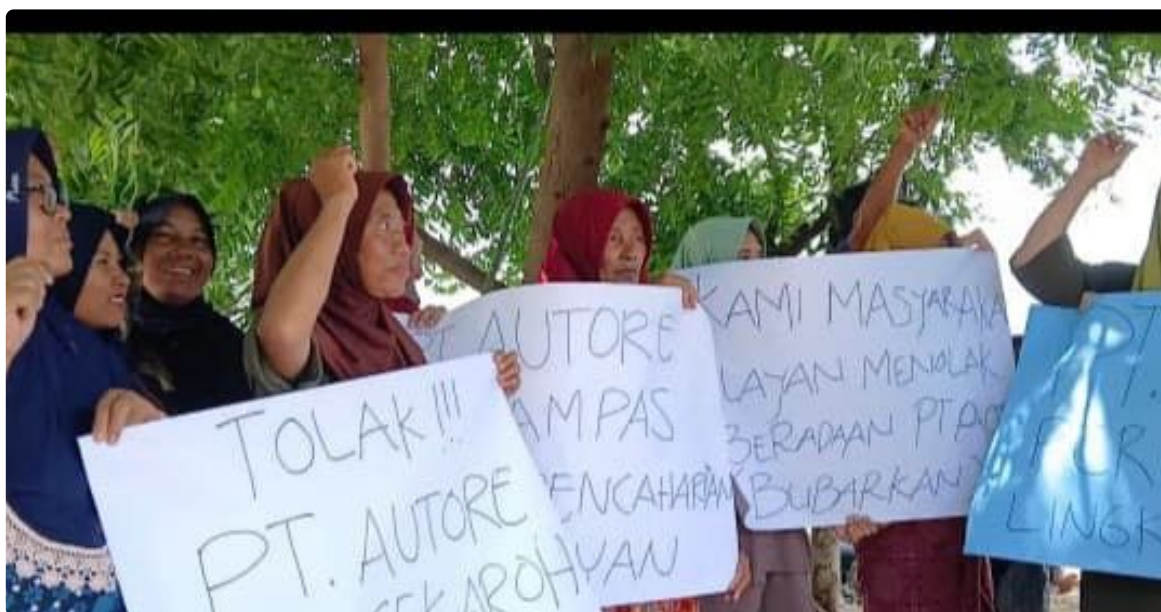 TOLAK!!!
PT. AUTORE
SEKAROH
AUTORE
AMPAS
ENCAHARIAN
YAN
KAMI MASYARAKA
LAYAN MENOLAK
BERADAAN PT AUT
BUBARKAN
PT.
LINGK